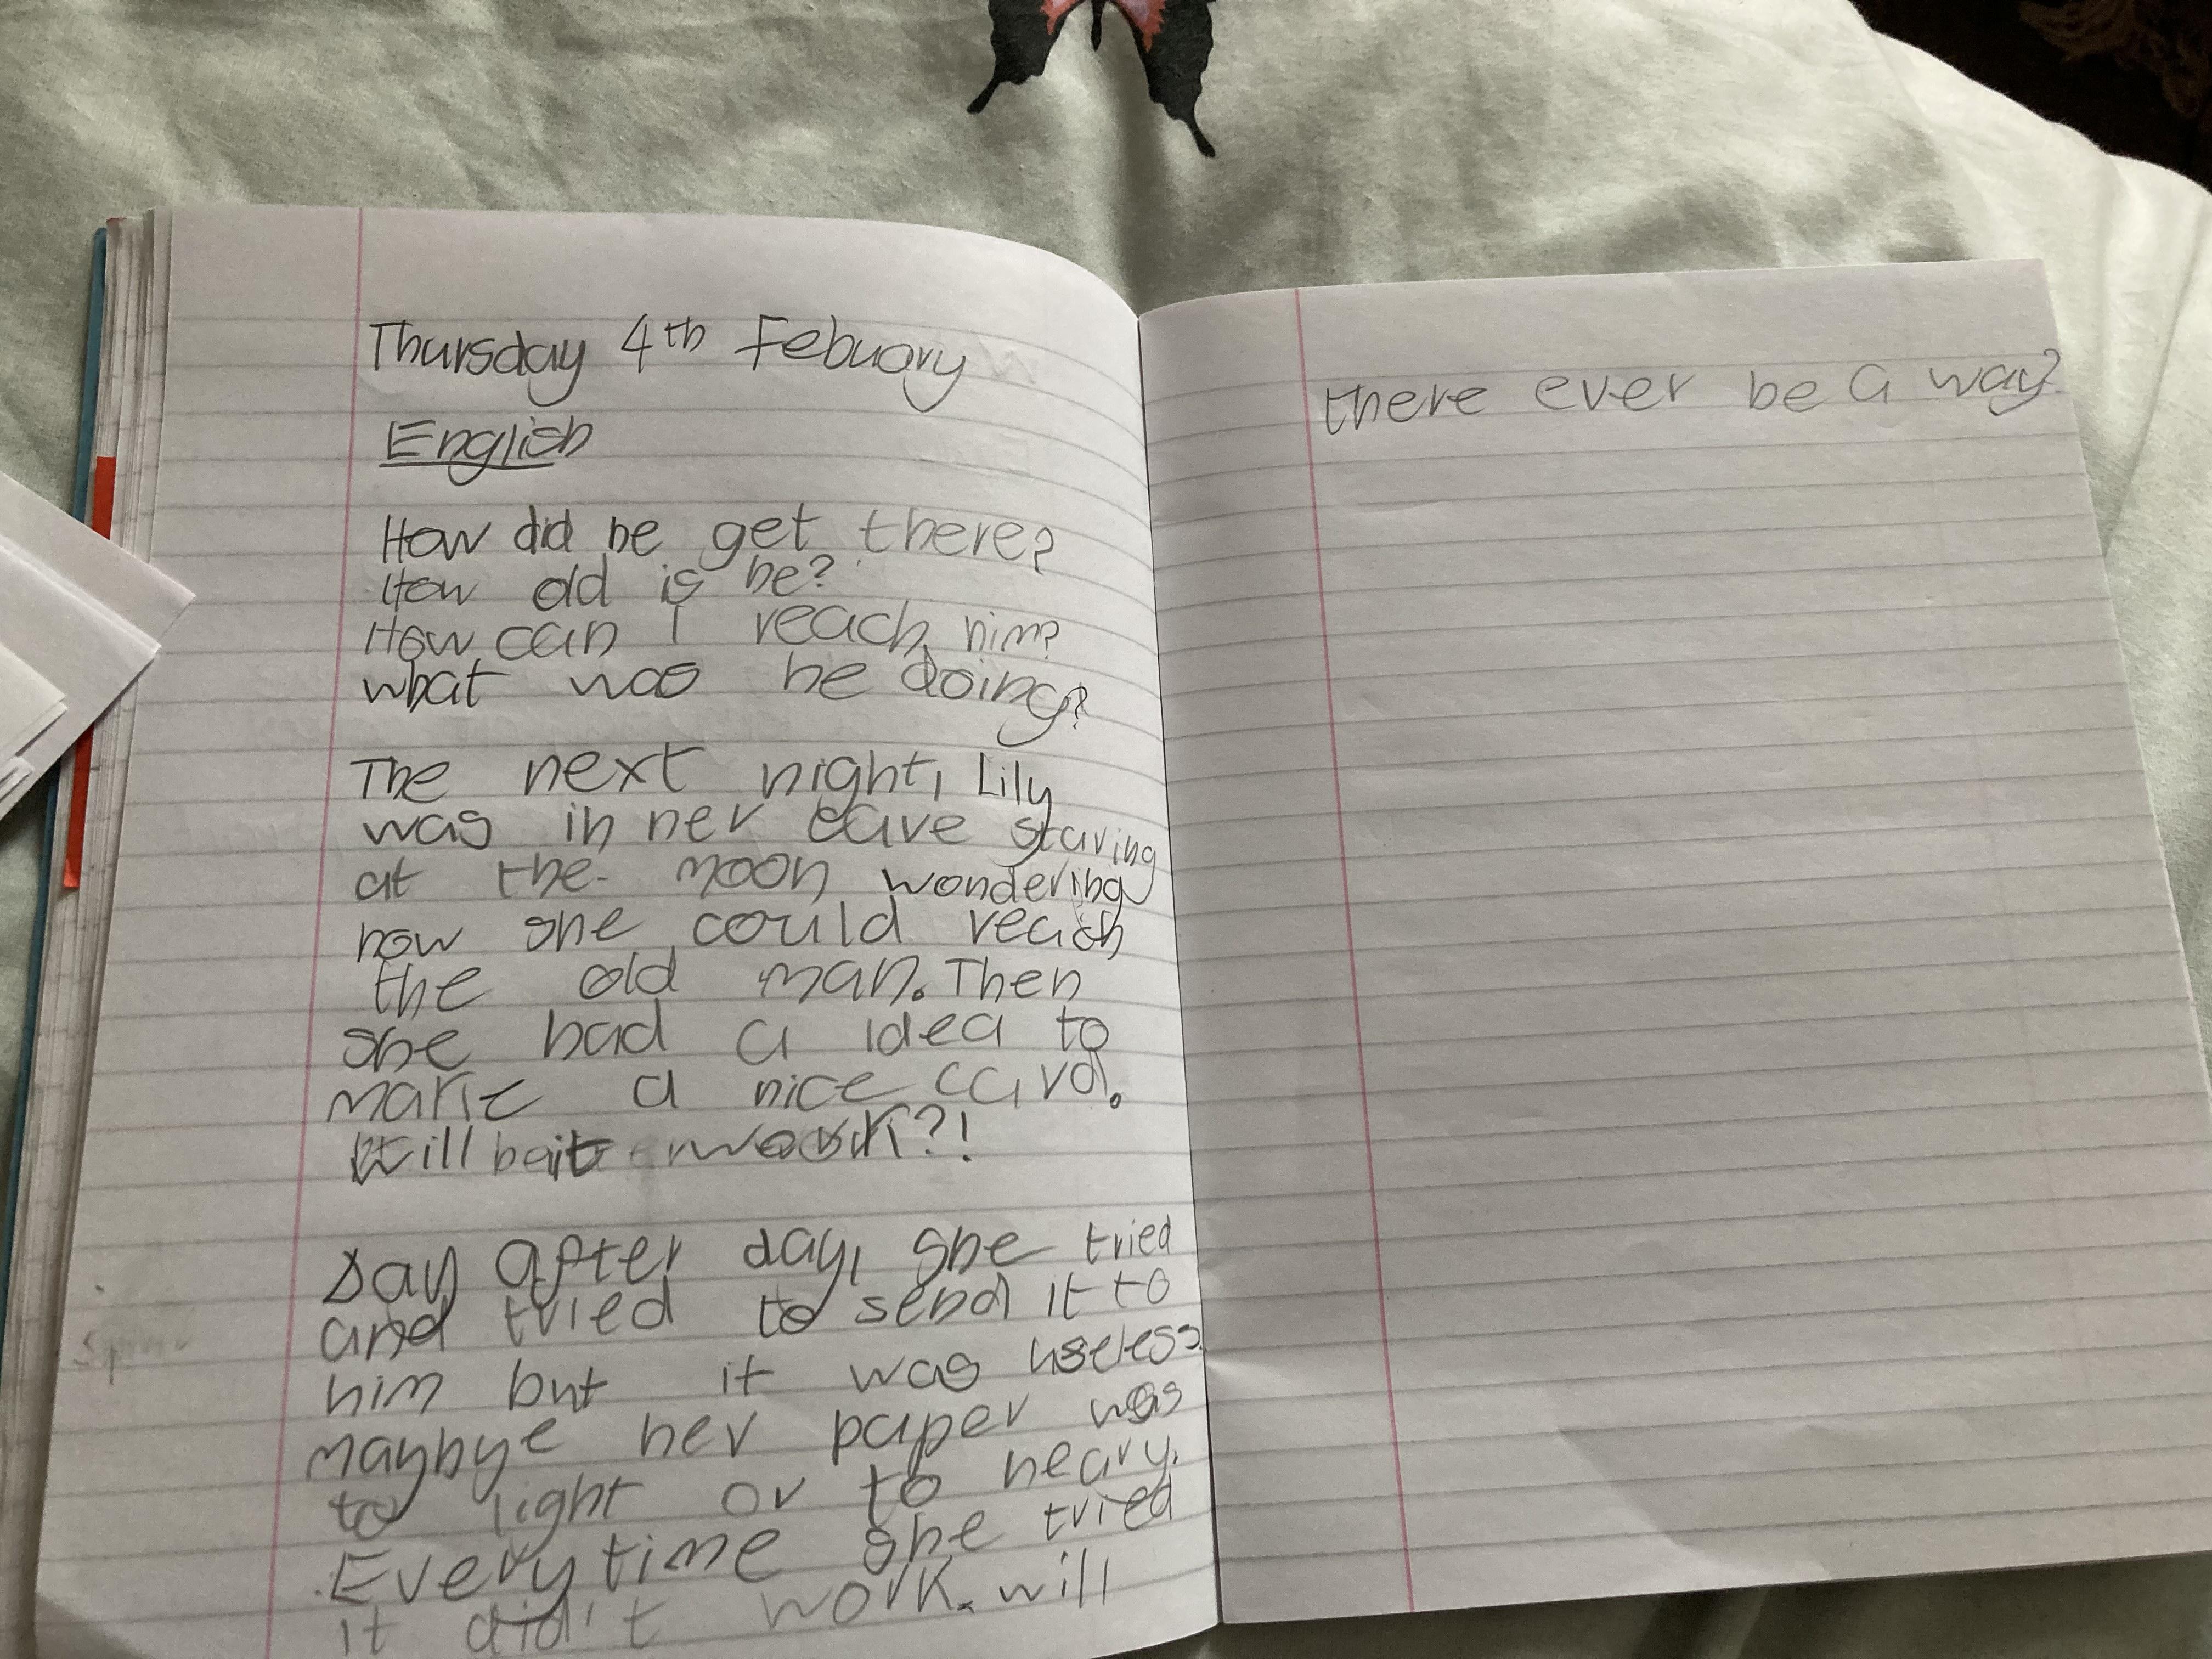 Thursday 4th Febuary
English
How did he get there?
How old is he?
How can I reach him?
what was he doing?
The next night, Lily
was in her cave staring
at the moon wondering
how she could reach
the old man. Then
she had a idea to
make a nice card.
Will it work?!
Day after day, she tried
and tried to send it to
him but it was useless.
maybye her paper was
to light or to heavy.
Every time she tried
it didn't work. will
there ever be a way?